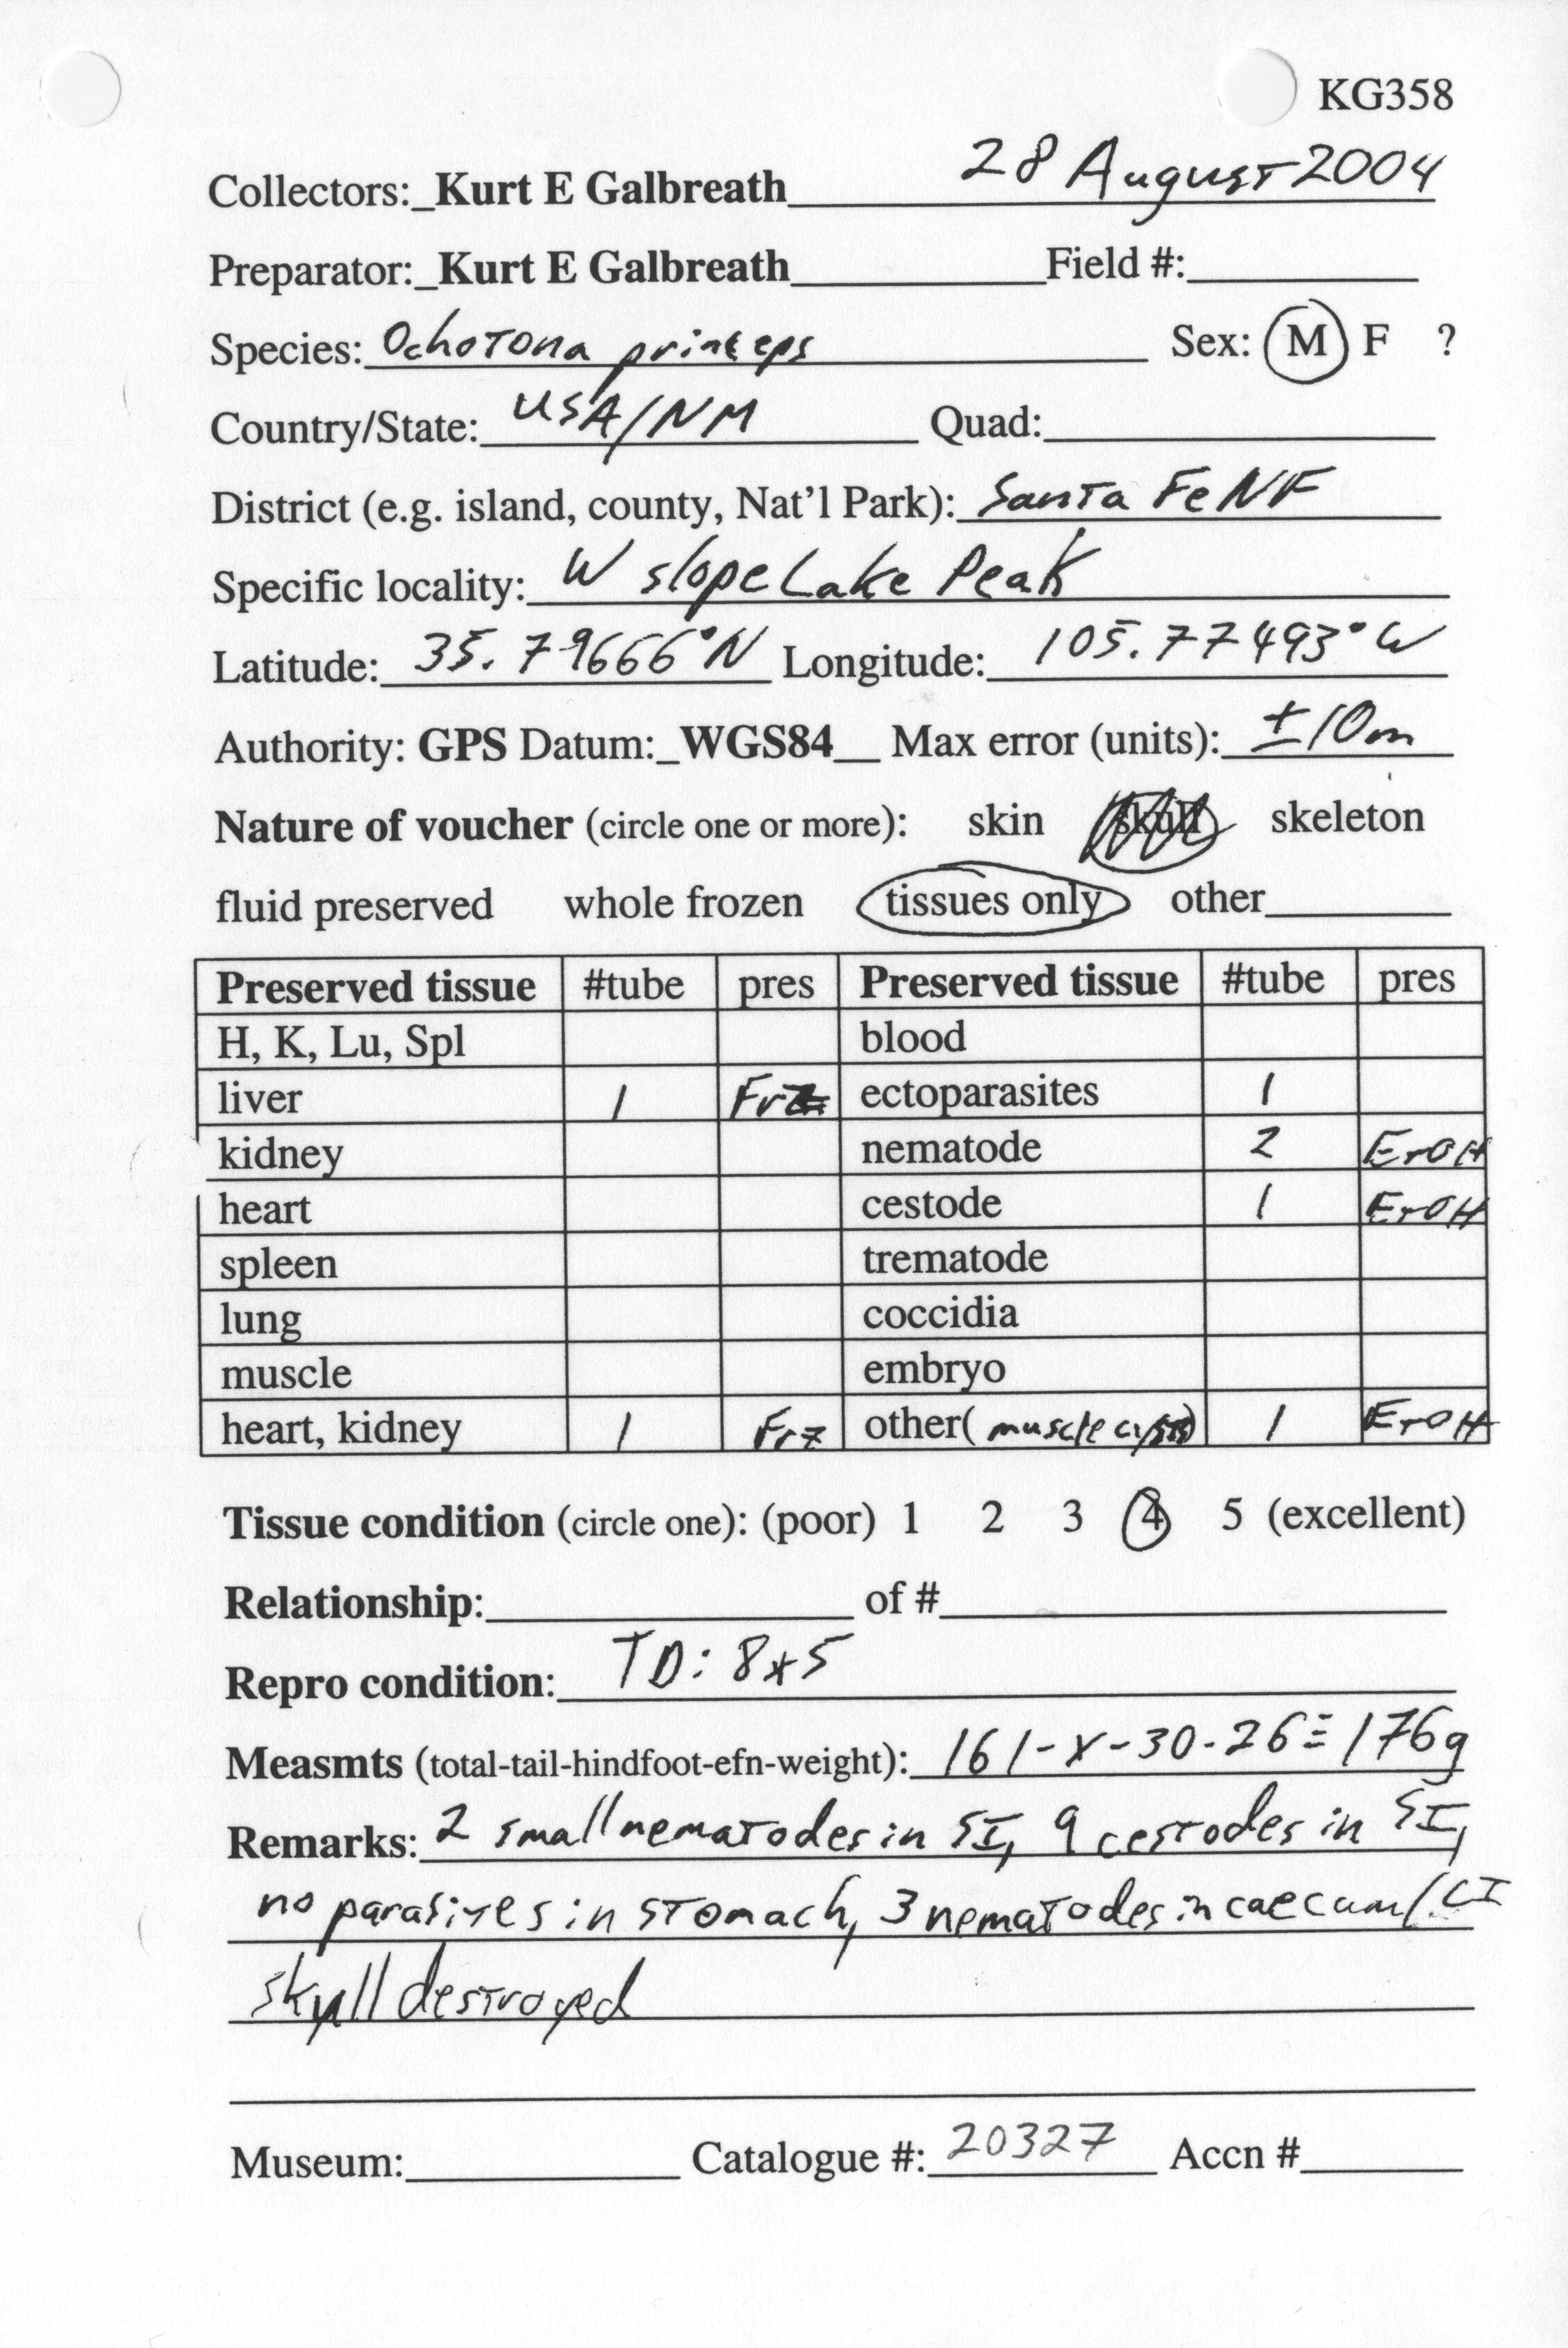 KG358
Collectors:_Kurt E Galbreath 28 August 2004
Preparator:_Kurt E Galbreath Field #:
Species: Ochotona princeps Sex: M F ?
Country/State: USA/NM Quad:
District (e.g. island, county, Nat'l Park): Santa Fe NF
Specific locality: W slope Lake Peak
Latitude: 35.79666°N Longitude: 105.77493°W
Authority: GPS Datum:_WGS84__ Max error (units): ±10m
Nature of voucher (circle one or more): skin skull skeleton
fluid preserved whole frozen tissues only other
Preserved tissue #tube pres Preserved tissue #tube pres
H, K, Lu, Spl blood
liver 1 Frz ectoparasites 1
kidney nematode 2 EtOH
heart cestode 1 EtOH
spleen trematode
lung coccidia
muscle embryo
heart, kidney 1 Frz other( muscle cysts) 1 EtOH
Tissue condition (circle one): (poor) 1 2 3 4 5 (excellent)
Relationship: of #
Repro condition: TD: 8x5
Measmts (total-tail-hindfoot-efn-weight): 161-x-30-26≡176g
Remarks: 2 small nematodes in SI, 9 cestodes in SI,
no parasites in stomach, 3 nematodes in caecum/LI
skull destroyed
Museum: Catalogue #: 20327 Accn #